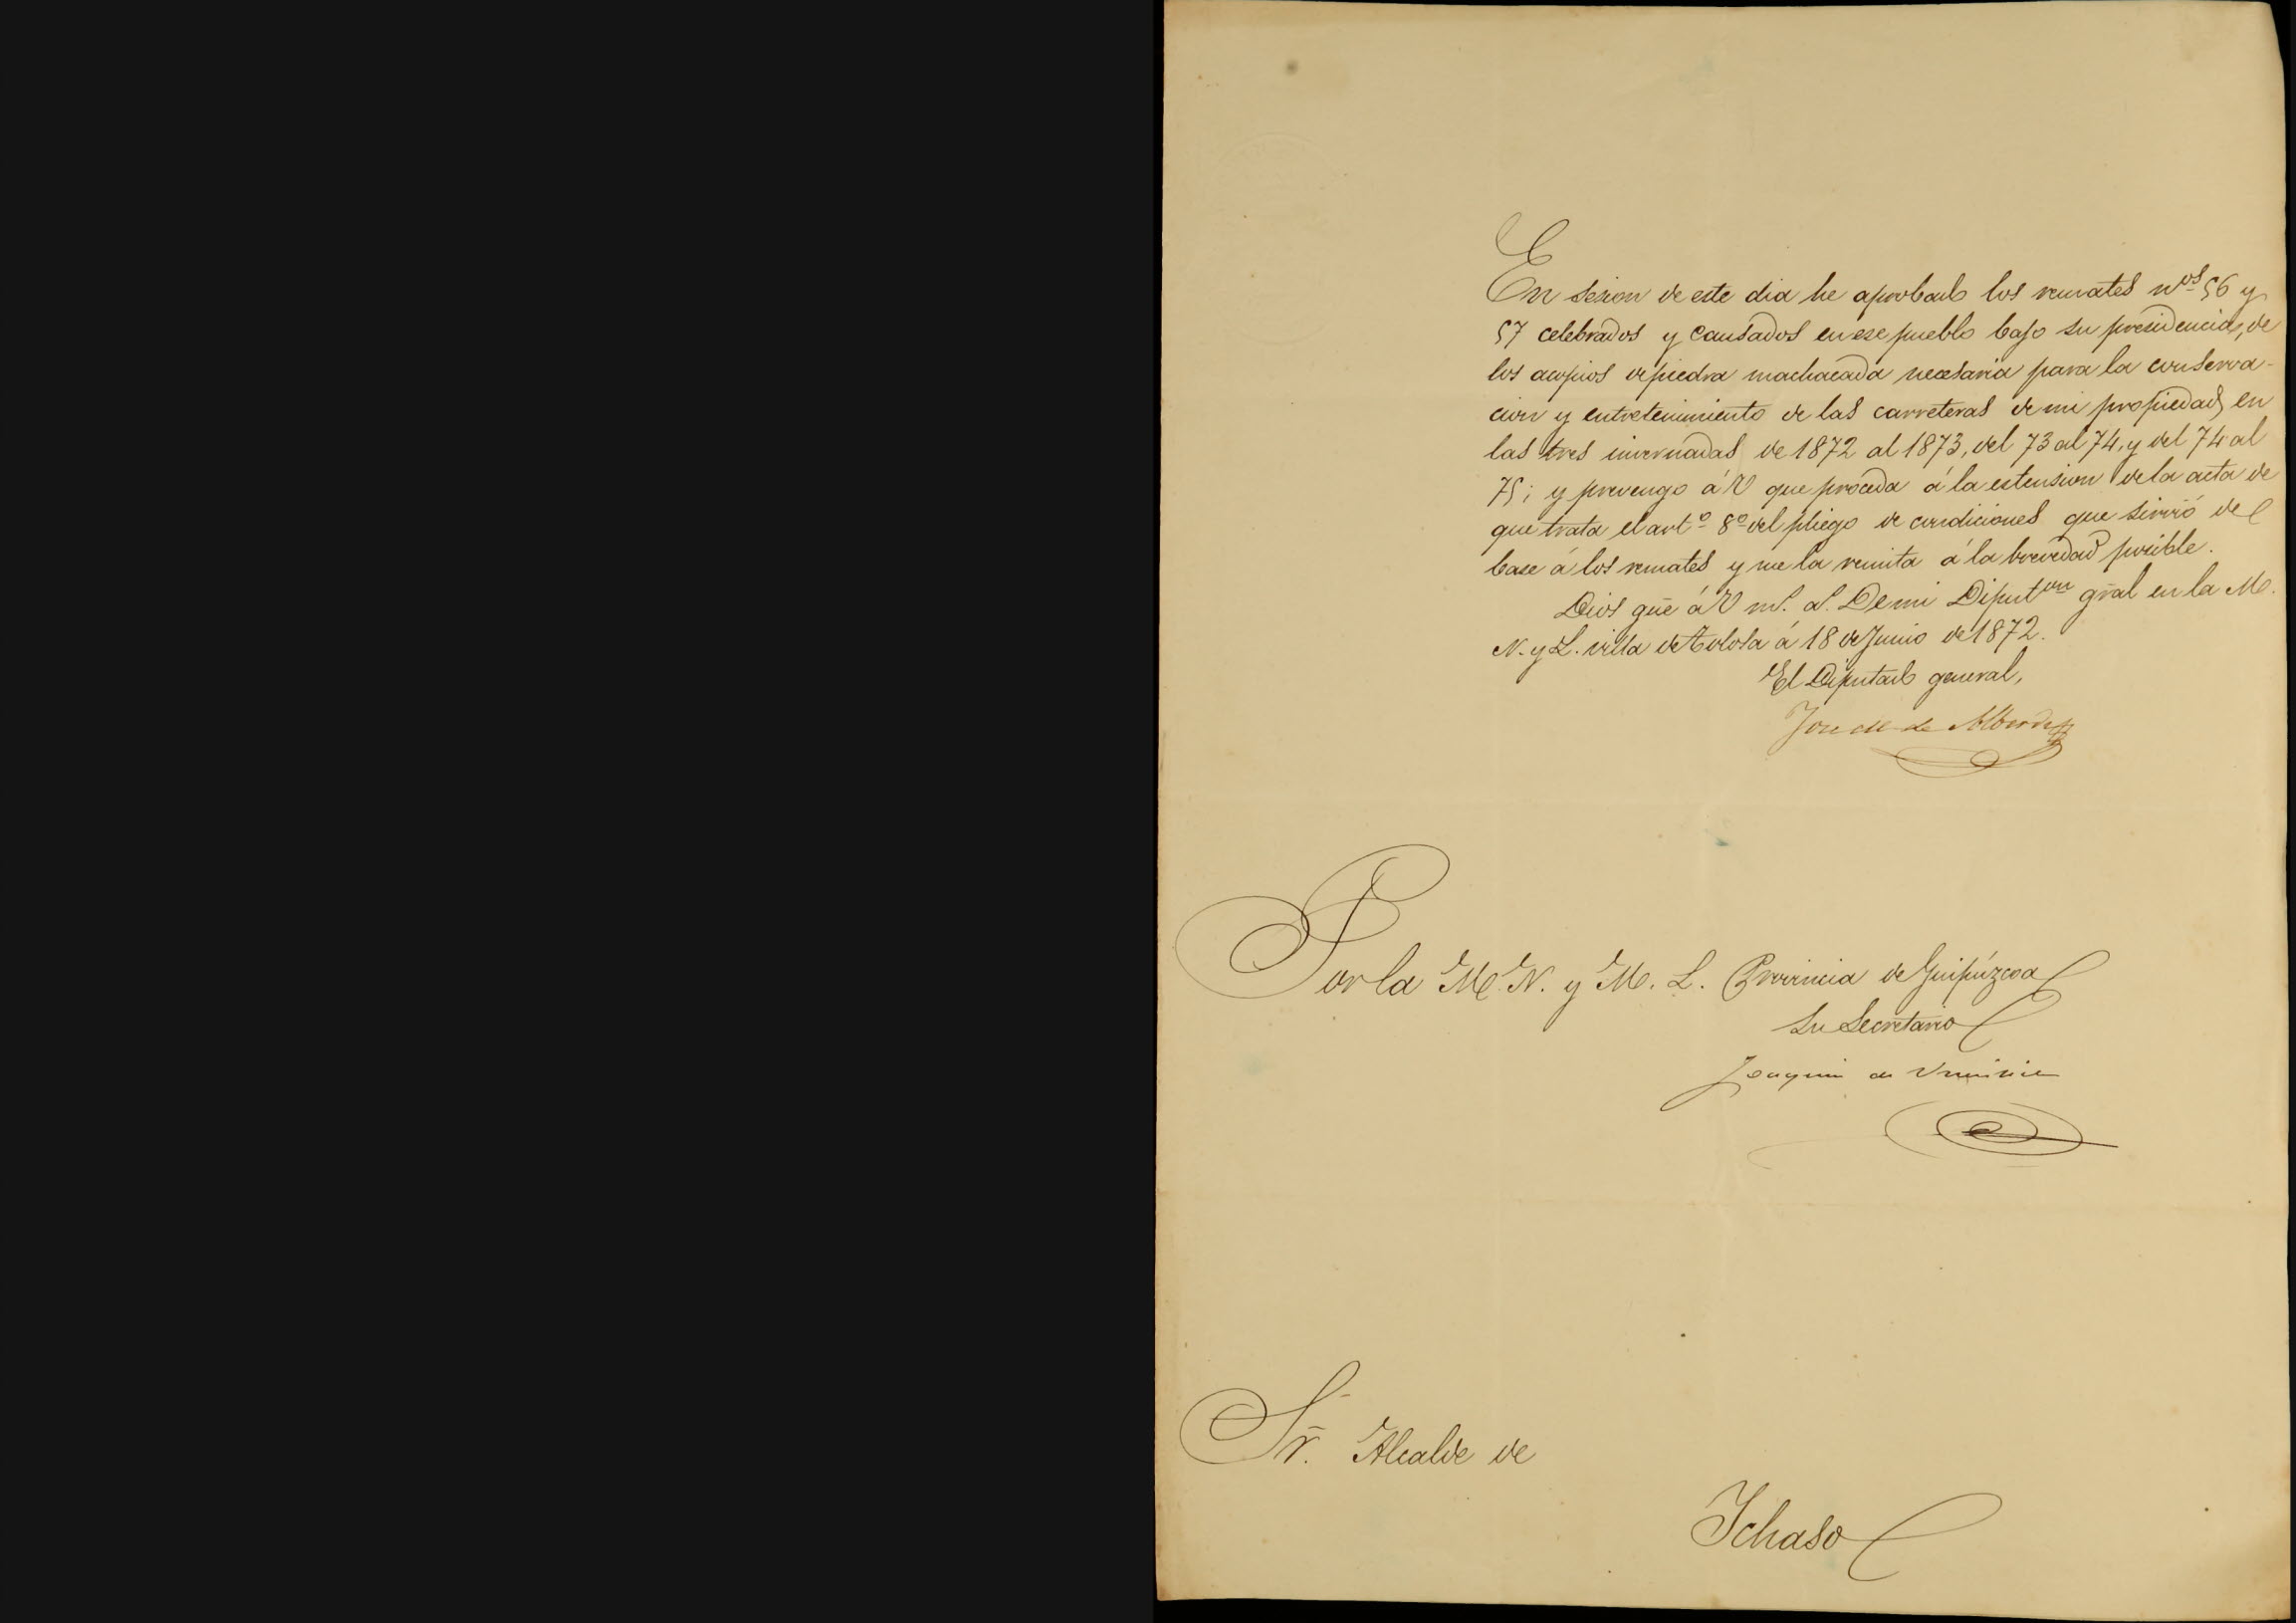 En sesion de este dia he aprobado los remates nos. 56 y
57 celebrados y causados en ese pueblo bajo su presidencia, de
los acopios de piedra machacada necesaria para la conserva-
cion y entretenimiento de las carreteras de mi propiedad, en
las tres invernadas de 1872 al 1873, del 73 al 74, y del 74 al
75; y prevengo á V que proceda á la estension de la acta de
que trata el art.º 8.º del pliego de condiciones que sirvió de
base á los remates y me la remita á la brevedad posible.
Dios gũe á V ms. as. De mi Diputon gral en la M.
N. y L. villa de Tolosa á 18 de Junio de 1872.
El Diputado general,
José M. de
Por la M. N. y M. L. Provincia de Guipúzcoa
Su Secretario
Joaquin de Urreiztieta
Sr. Alcalde de
Ichaso